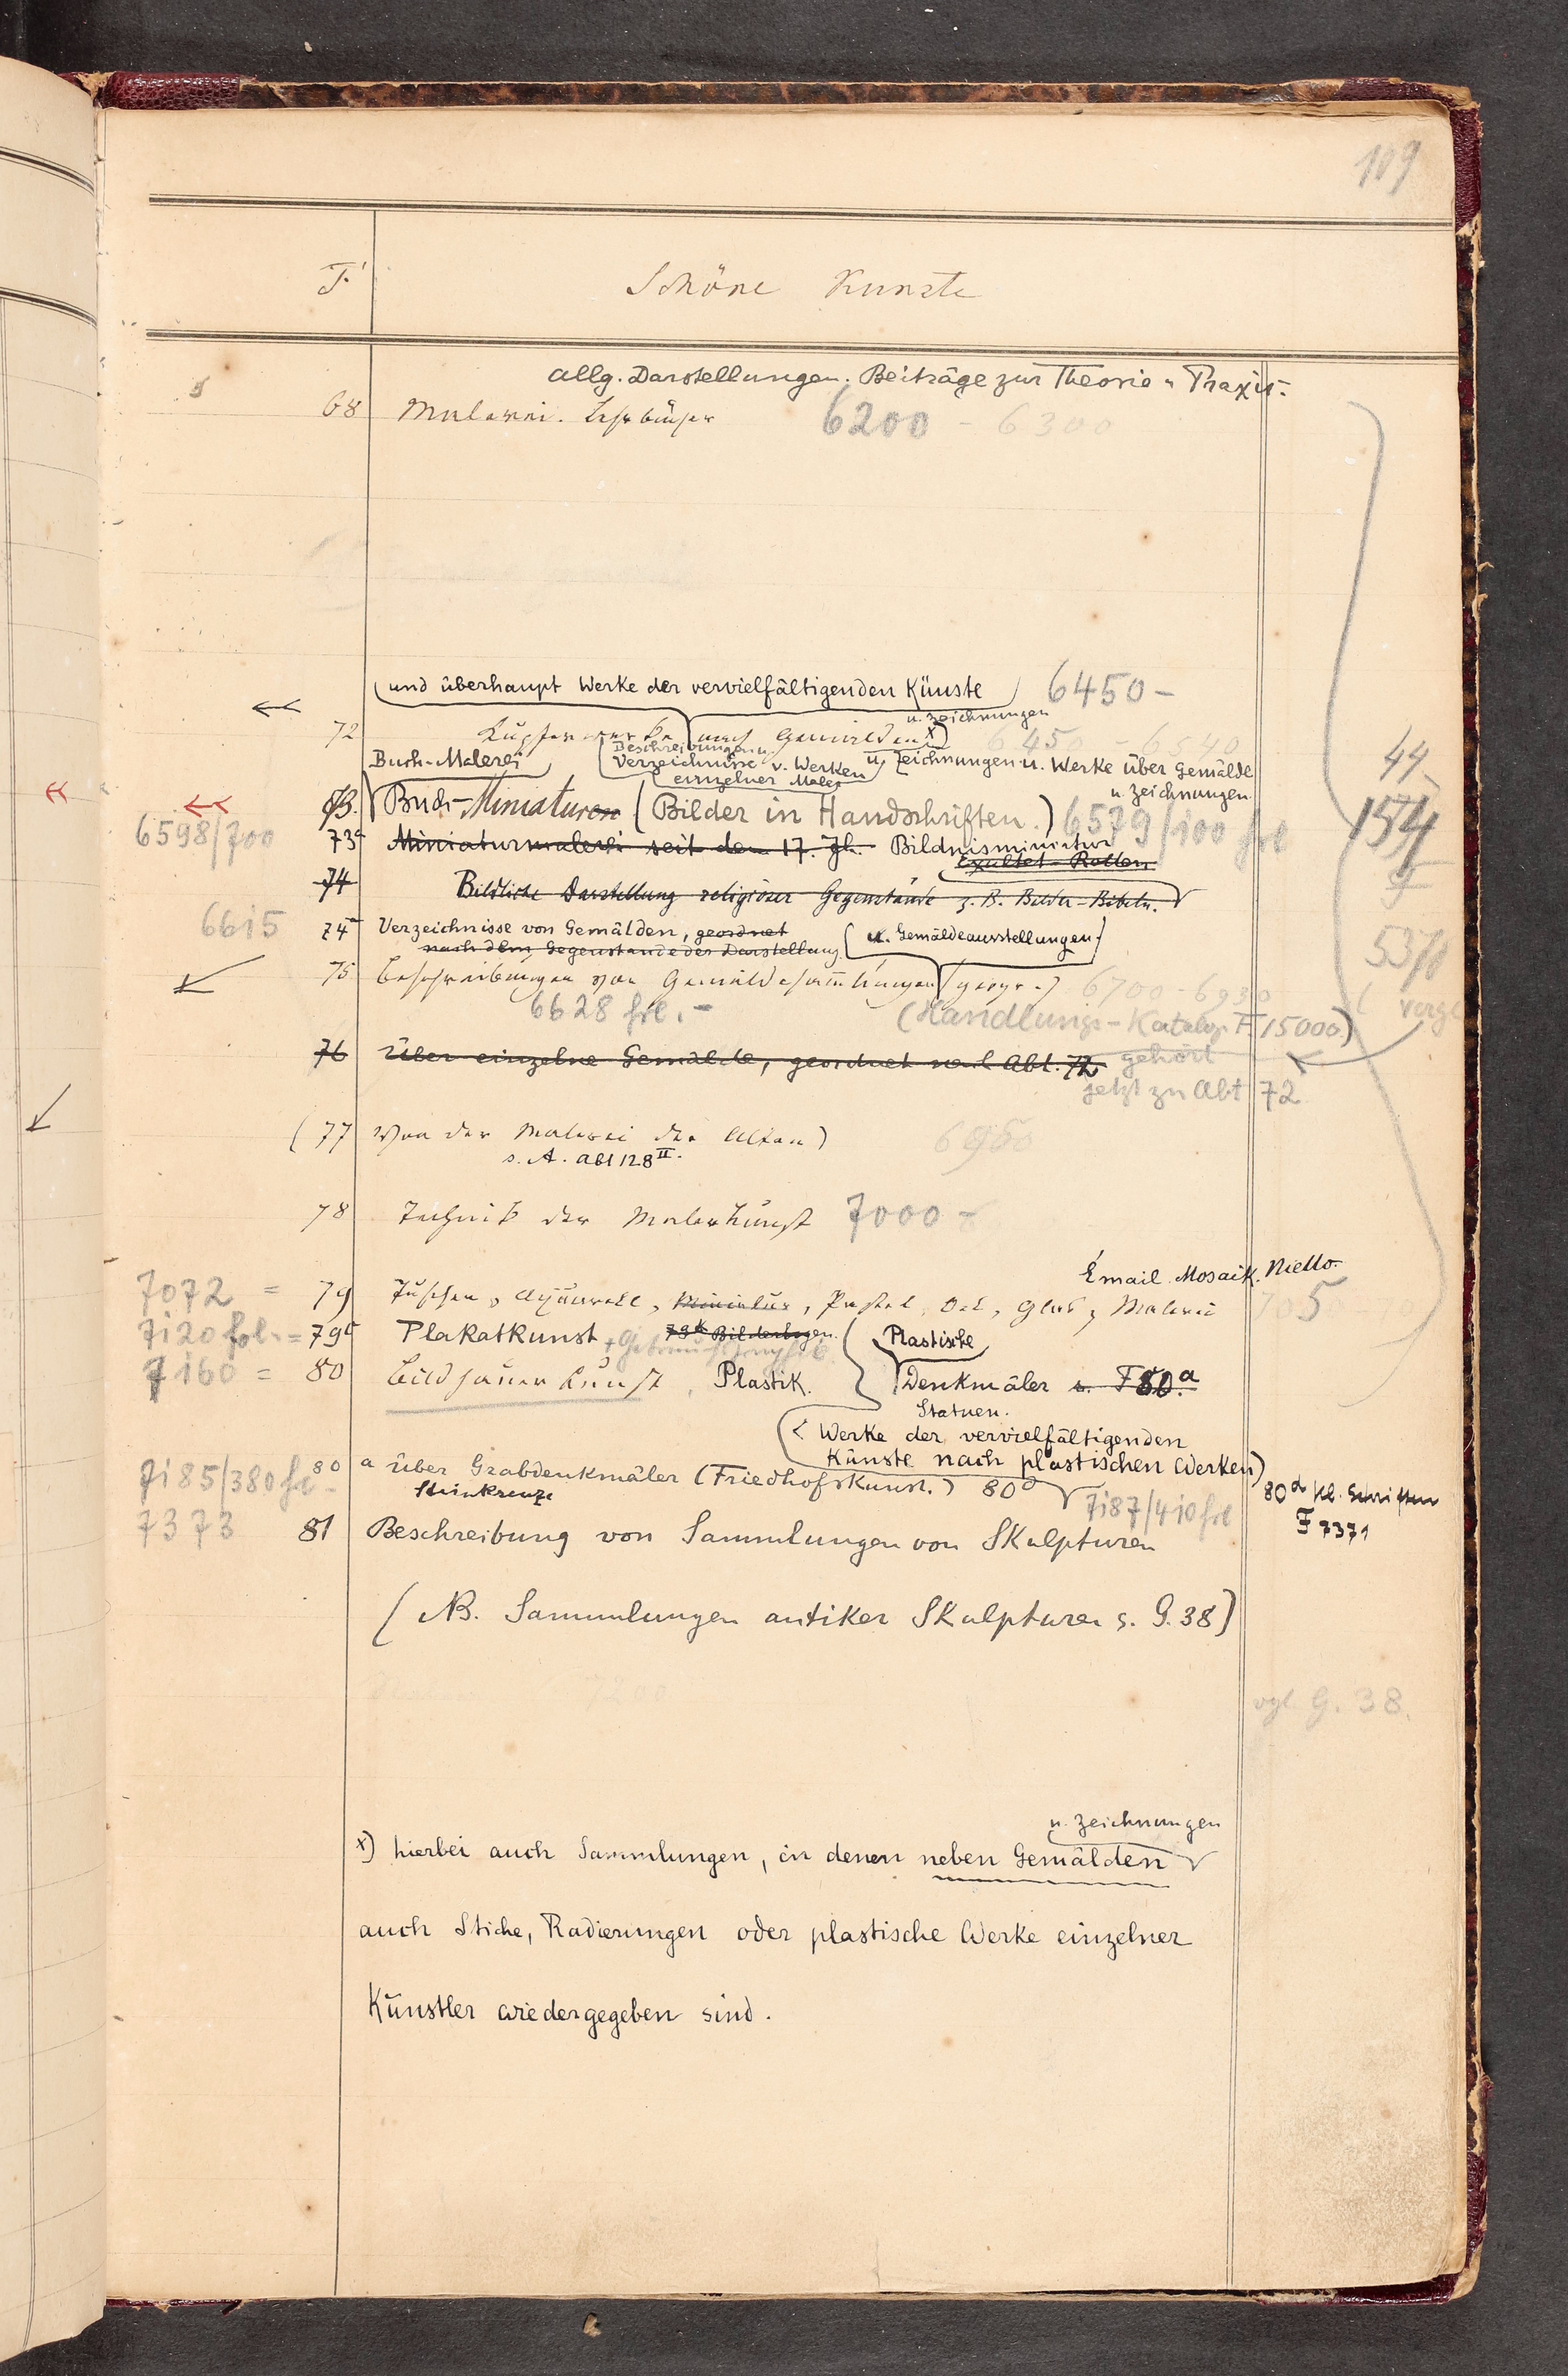 109
F. Schöne Künste
allg. Darstellungen. Beiträge zur Theorie u Praxis.
68 Malerei. Lehrbücher 6200 - 6300
(und überhaupt Werke der vervielfältigenden Künste) 6450 -
u. Zeichnungen
72 Kupferwerke nach Gemälden x) 6450 - 6540
Buch-Malerei
(Beschreibungen u.
Verzeichnisse v. Werken
einzelner Maler
u. Zeichnungen u. Werke über Gemälde
u. Zeichnungen.
73. Buch-Miniaturen (Bilder in Handschriften.) 6579/100 fol
6598/700 73a Miniaturmalerei seit dem 17. Jh. Bildnisminiatur
Exultet-Rollen
74 Bildliche Darstellung religiöser Gegenstände z. B. Bilder-Bibeln.
6615 74a Verzeichnisse von Gemälden, geordnet
nach dem Gegenstande der Darstellung
(u. Gemäldeausstellungen)
75 Beschreibungen von Gemäldesammlungen (geogr.) 6700 - 6930
6628 fol. -
(Handlungs-Katalog F 15000)
vergl
76 Über einzelne Gemälde, geordnet nach Abt. 72 gehört
jetzt zu Abt 72
(77 Von der Malerei der Alten) 6950
s. A. Abt 128 II.
78 Technik der Malerkunst 7000 -
Email. Mosaik. Niello.
7072 = 79 Tuschen, Aquarell, Miniatur, Pastel, Oel, Glas, Malerei 705
7120 fol. = 79c Plakatkunst + Gebrauchsgraphik 79b Bilderbogen.
Plastische
7160 = 80 Bildhauerkunst, Plastik. Denkmäler s. F 80.a
Statuen.
(< Werke der vervielfältigenden
Künste nach plastischen Werken)
7185/380 fol - 80 a über Grabdenkmäler (Friedhofskunst.)
Steinkreuze
7187/410 fol
80d Kl. Schriften
F 7371
7373 81 Beschreibung von Sammlungen von Skulpturen
(NB. Sammlungen antiker Skulpturen s. G. 38)
7200
vgl. G. 38.
44
154
9
53
u. Zeichnungen
x) hierbei auch Sammlungen, in denen neben Gemälden
auch Stiche, Radierungen oder plastische Werke einzelner
Künstler wiedergegeben sind.